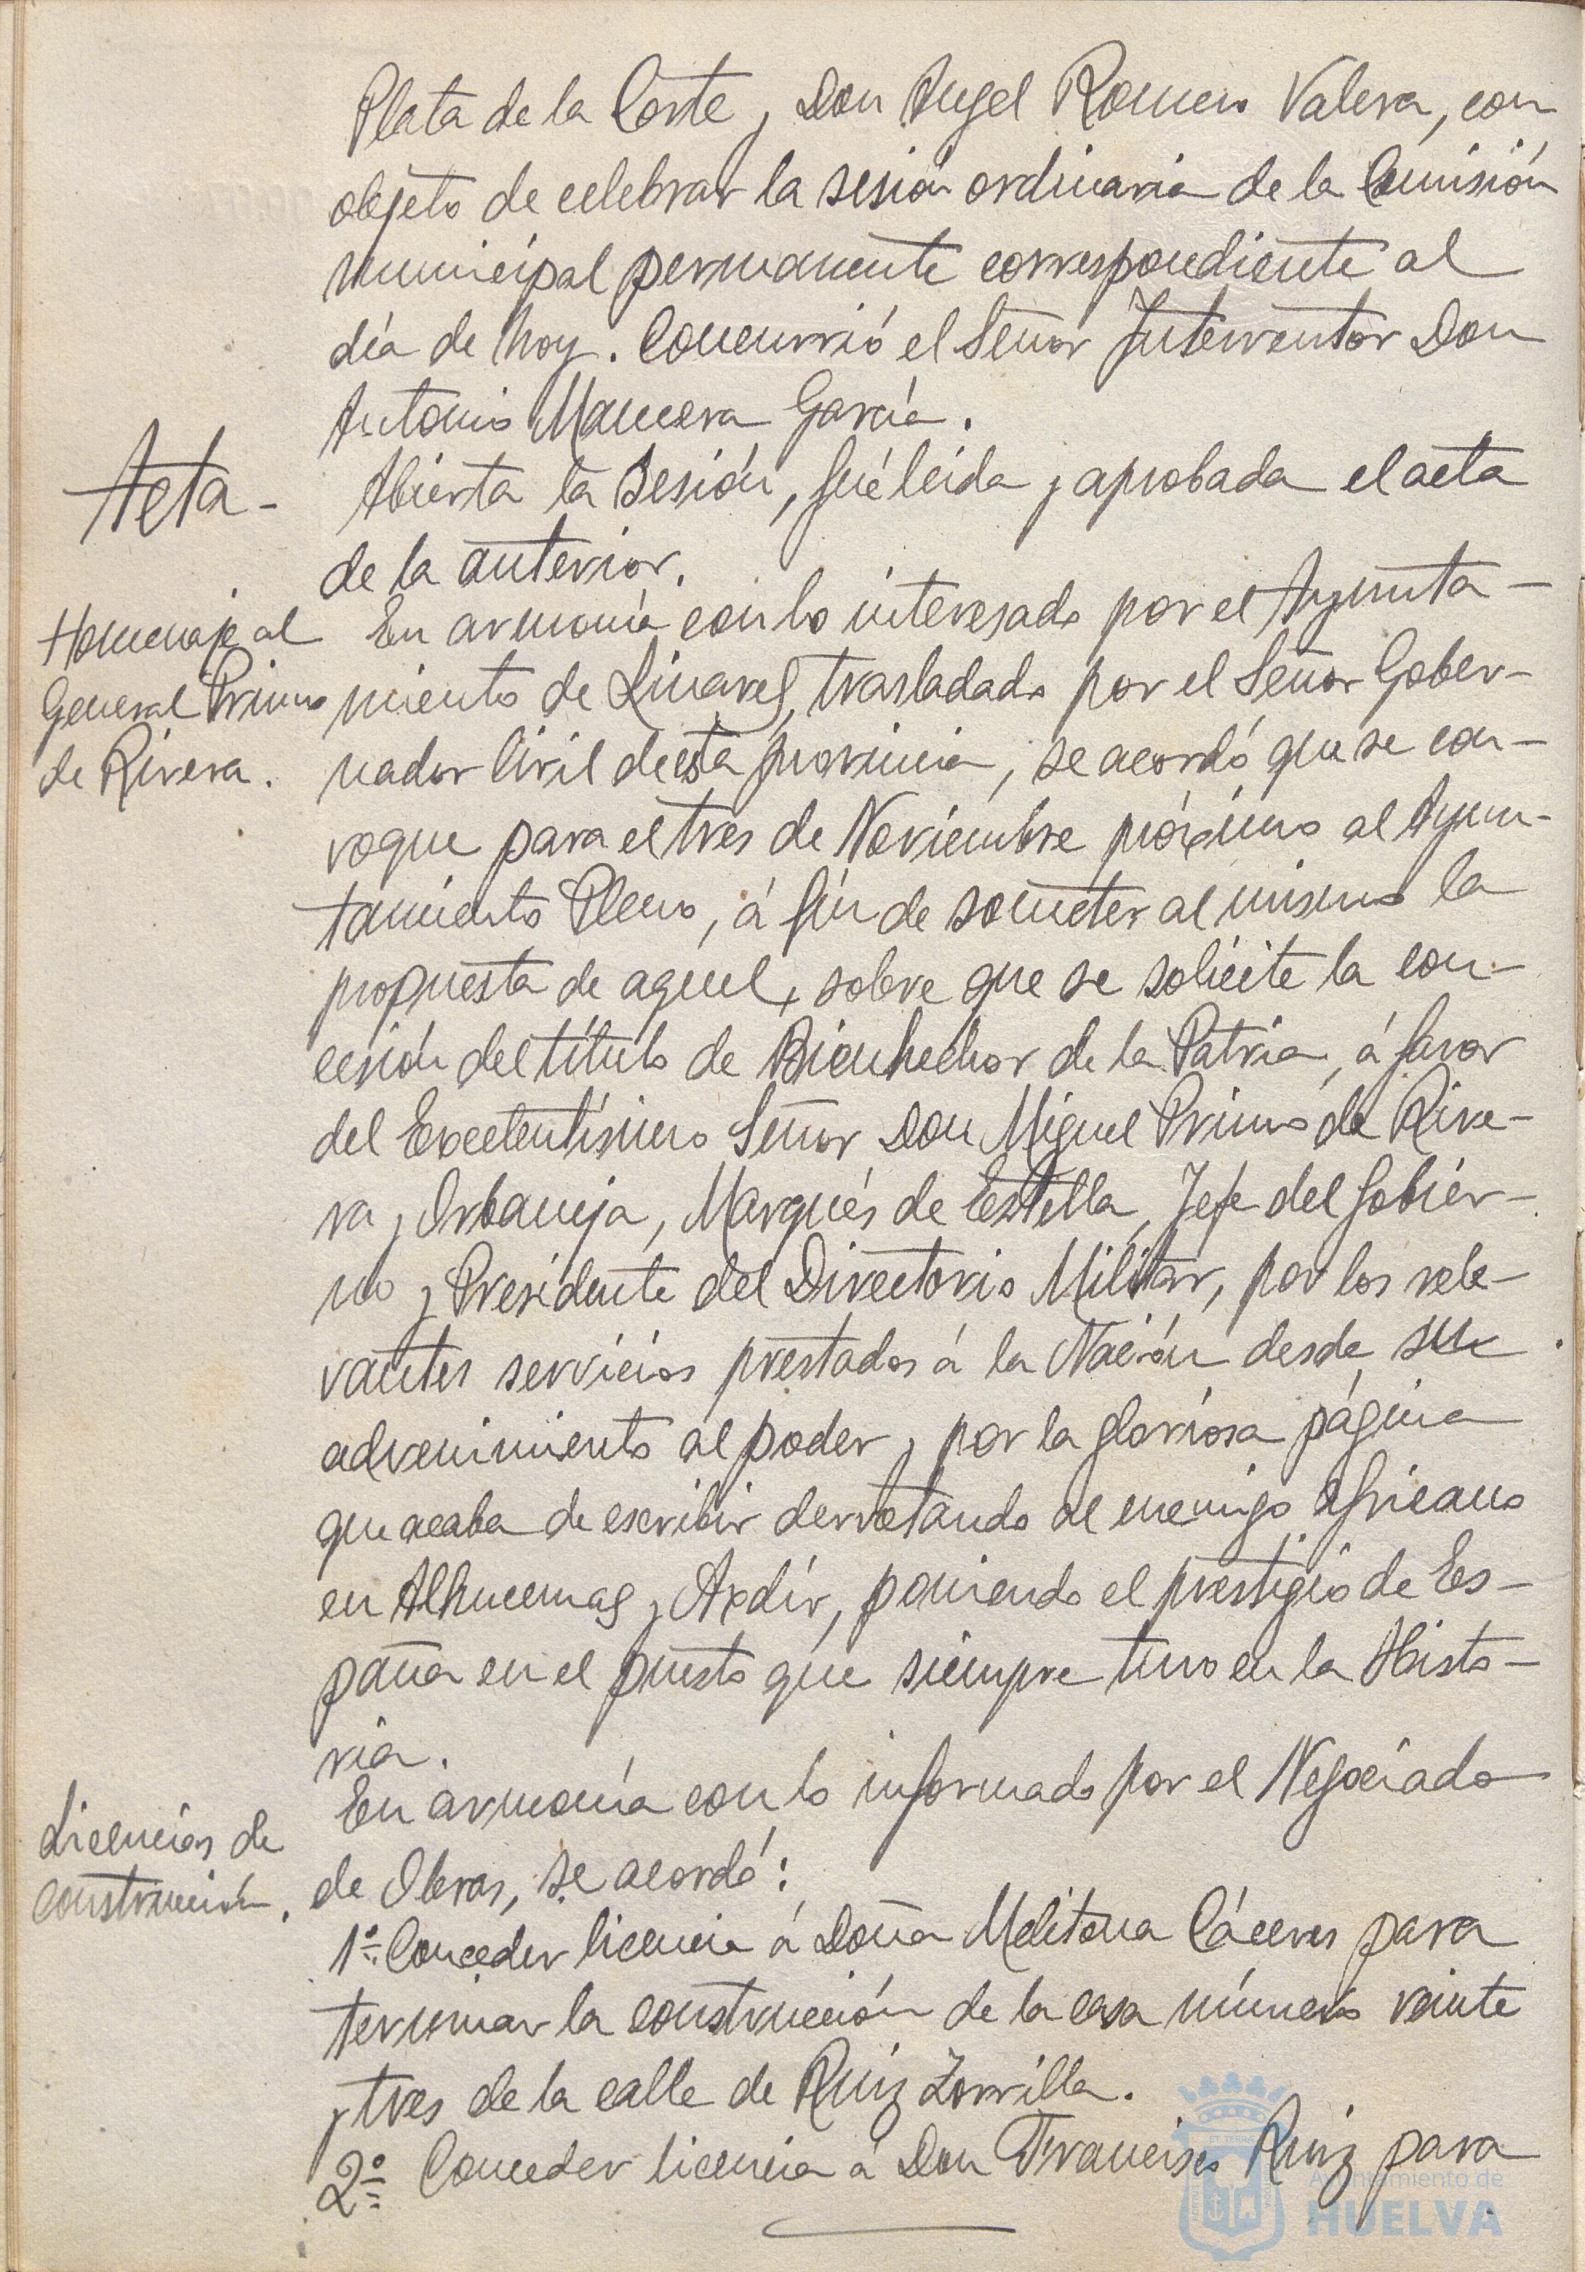 Plata de la Corte y Don Angel Romero Valera, con
objeto de celebrar la sesión ordinaria de la Comisión
municipal permanente correspondiente al
día de hoy. Concurrió el Señor Interventor Don
Antonio Mancera García.
Acta-
Abierta la Sesión, fué leida y aprobada el acta
de la anterior.
Homenaje al
General Primo
de Rivera.
En armonía con lo interesado por el Ayunta-
miento de Linares, trasladado por el Señor Gober-
nador Civil de esta provincia, se acordó que se con-
voque para el tres de Noviembre próximo al Ayun-
tamiento Pleno, á fin de someter al mismo la
propuesta de aquel, sobre que se solicite la con-
cesión del título de Bienhechor de la Patria, á favor
del Excelentísimo Señor Don Miguel Primo de Rive-
ra y Orbaneja, Marqués de Estella, Jefe del Gobier-
no y Presidente del Directorio Militar, por los rele-
vantes servicios prestados á la Nación desde su
advenimiento al poder y por la gloriosa página
que acaba de escribir derrotando al enemigo africano
en Alhucemas y Axdir, poniendo el prestigio de Es-
paña en el puesto que siempre tuvo en la Histo-
ria.
Licencias de
construcción.
En armonía con lo informado por el Negociado
de Obras, se acordó:
1º Conceder licencia á Doña Melitona Cáceres para
terminar la construcción de la casa número veinte
y tres de la calle de Ruiz Zorrilla.
2º Conceder licencia á Don Francisco Ruiz para
Ayuntamiento de
HUELVA